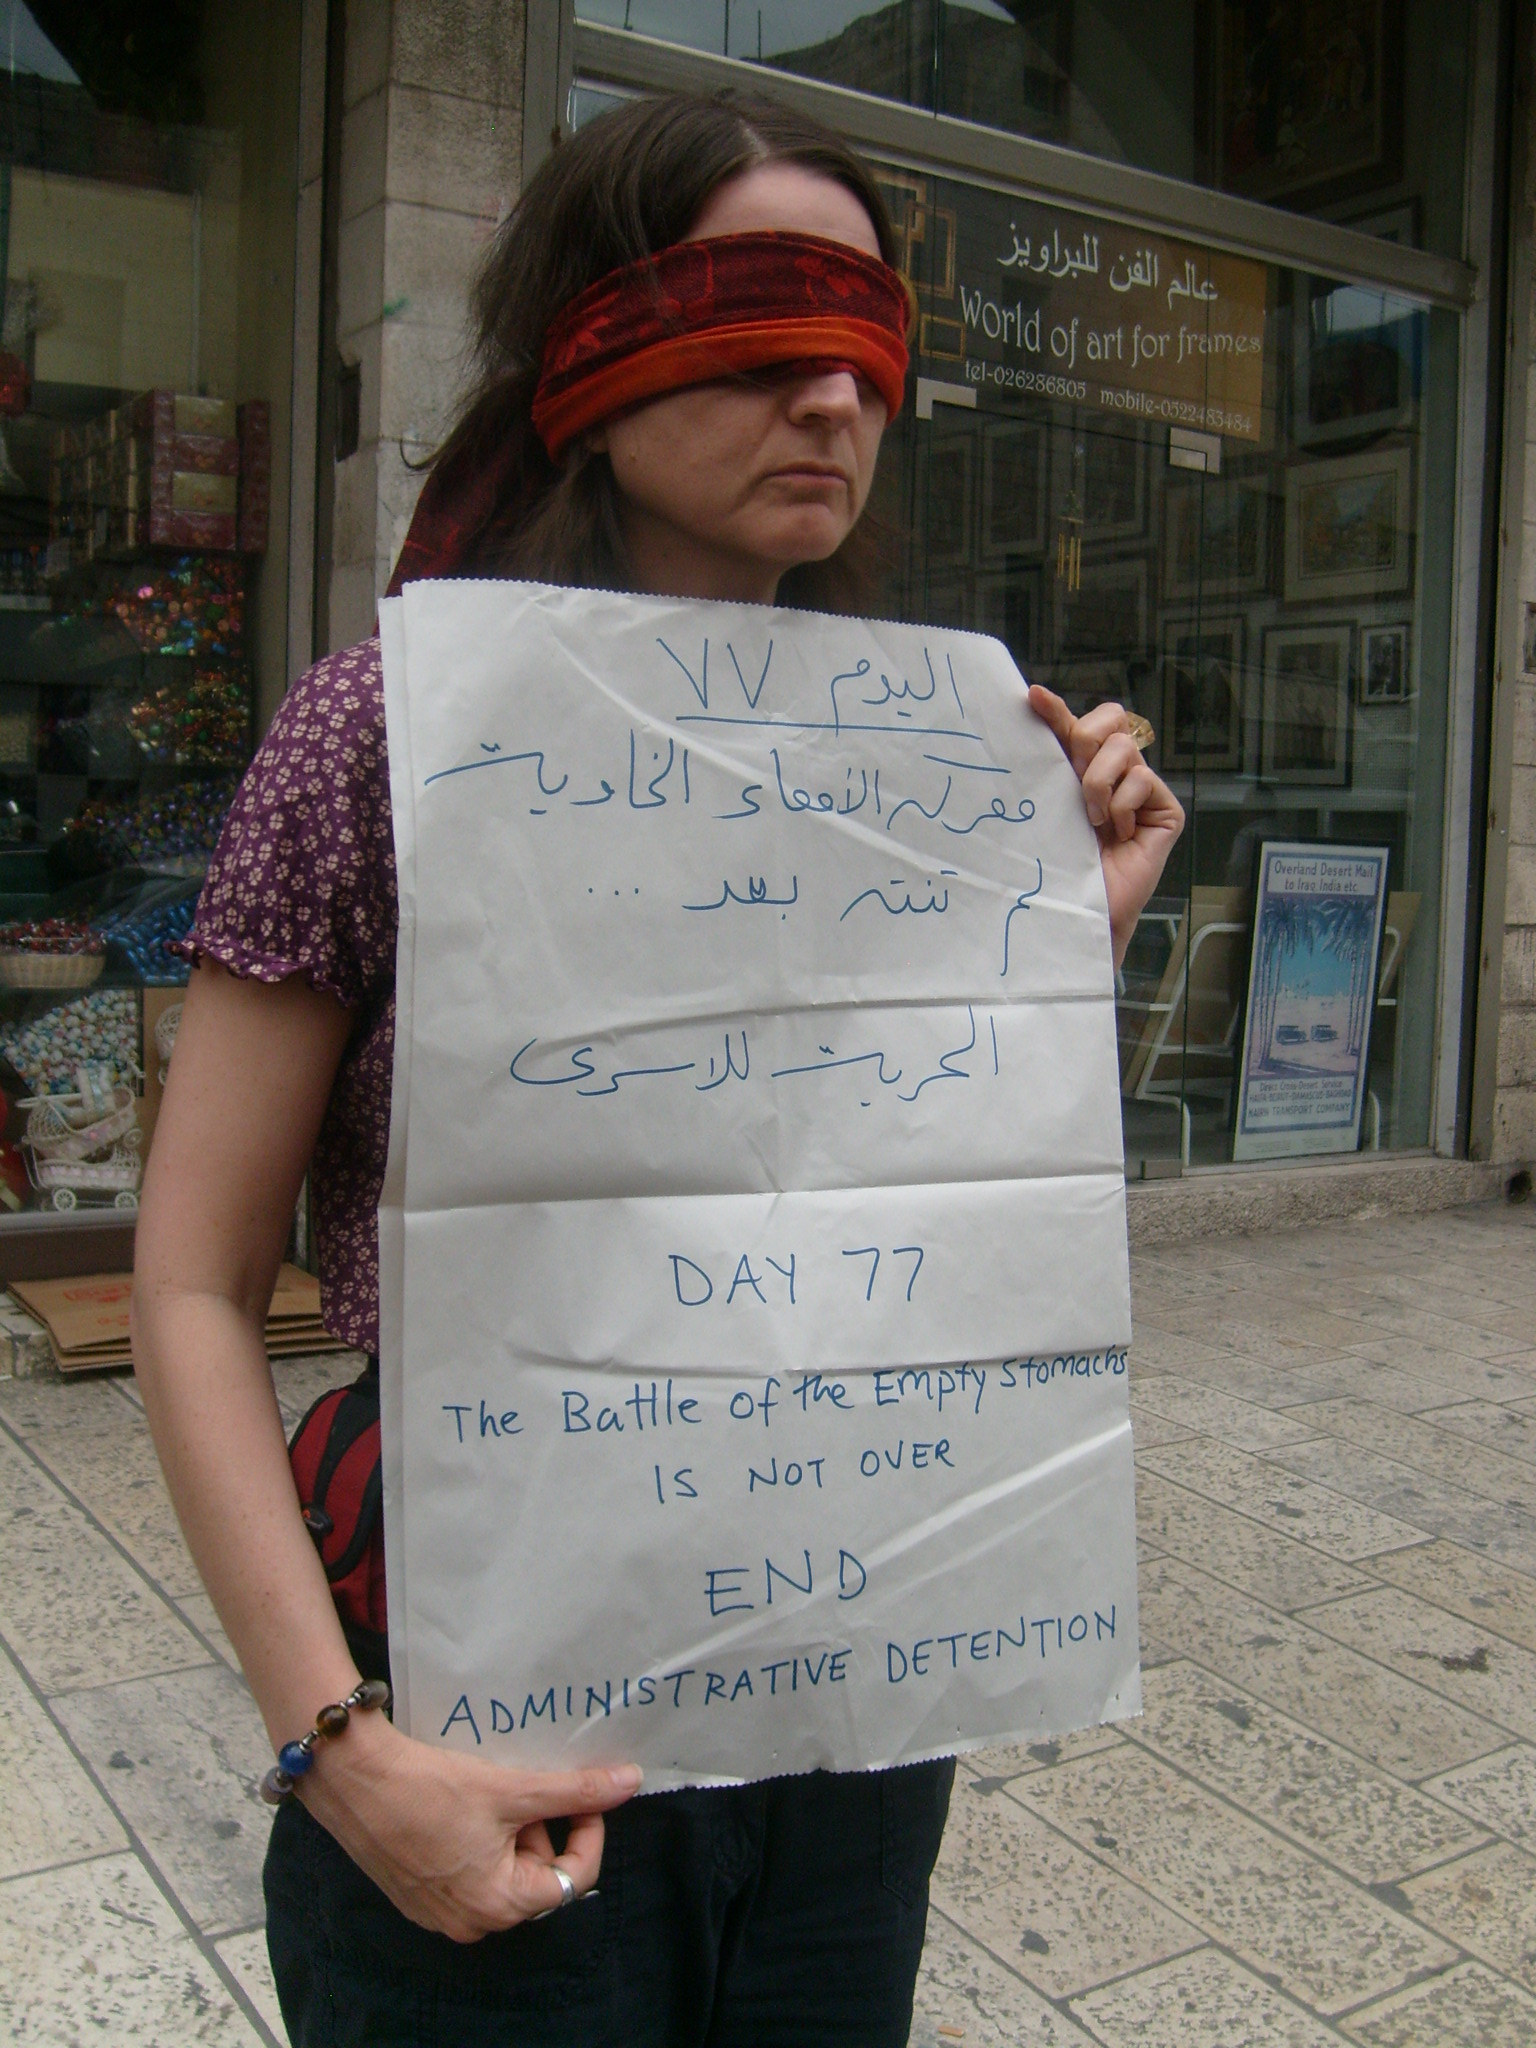 عالم الفن للبراويز
World of art for frames
tel-026286805 mobile-0522483484
اليوم ٧٧
معركة الأمعاء الخاوية
لم تنته بعد ...
الحرية للاسرى
DAY 77
The Battle of the Empty Stomachs
IS NOT OVER
END
ADMINISTRATIVE DETENTION
Overland Desert Mail
to Iraq India etc.
Direct Cross-Desert Service
HAIFA-BEIRUT-DAMASCUS-BAGHDAD
NAIRN TRANSPORT COMPANY